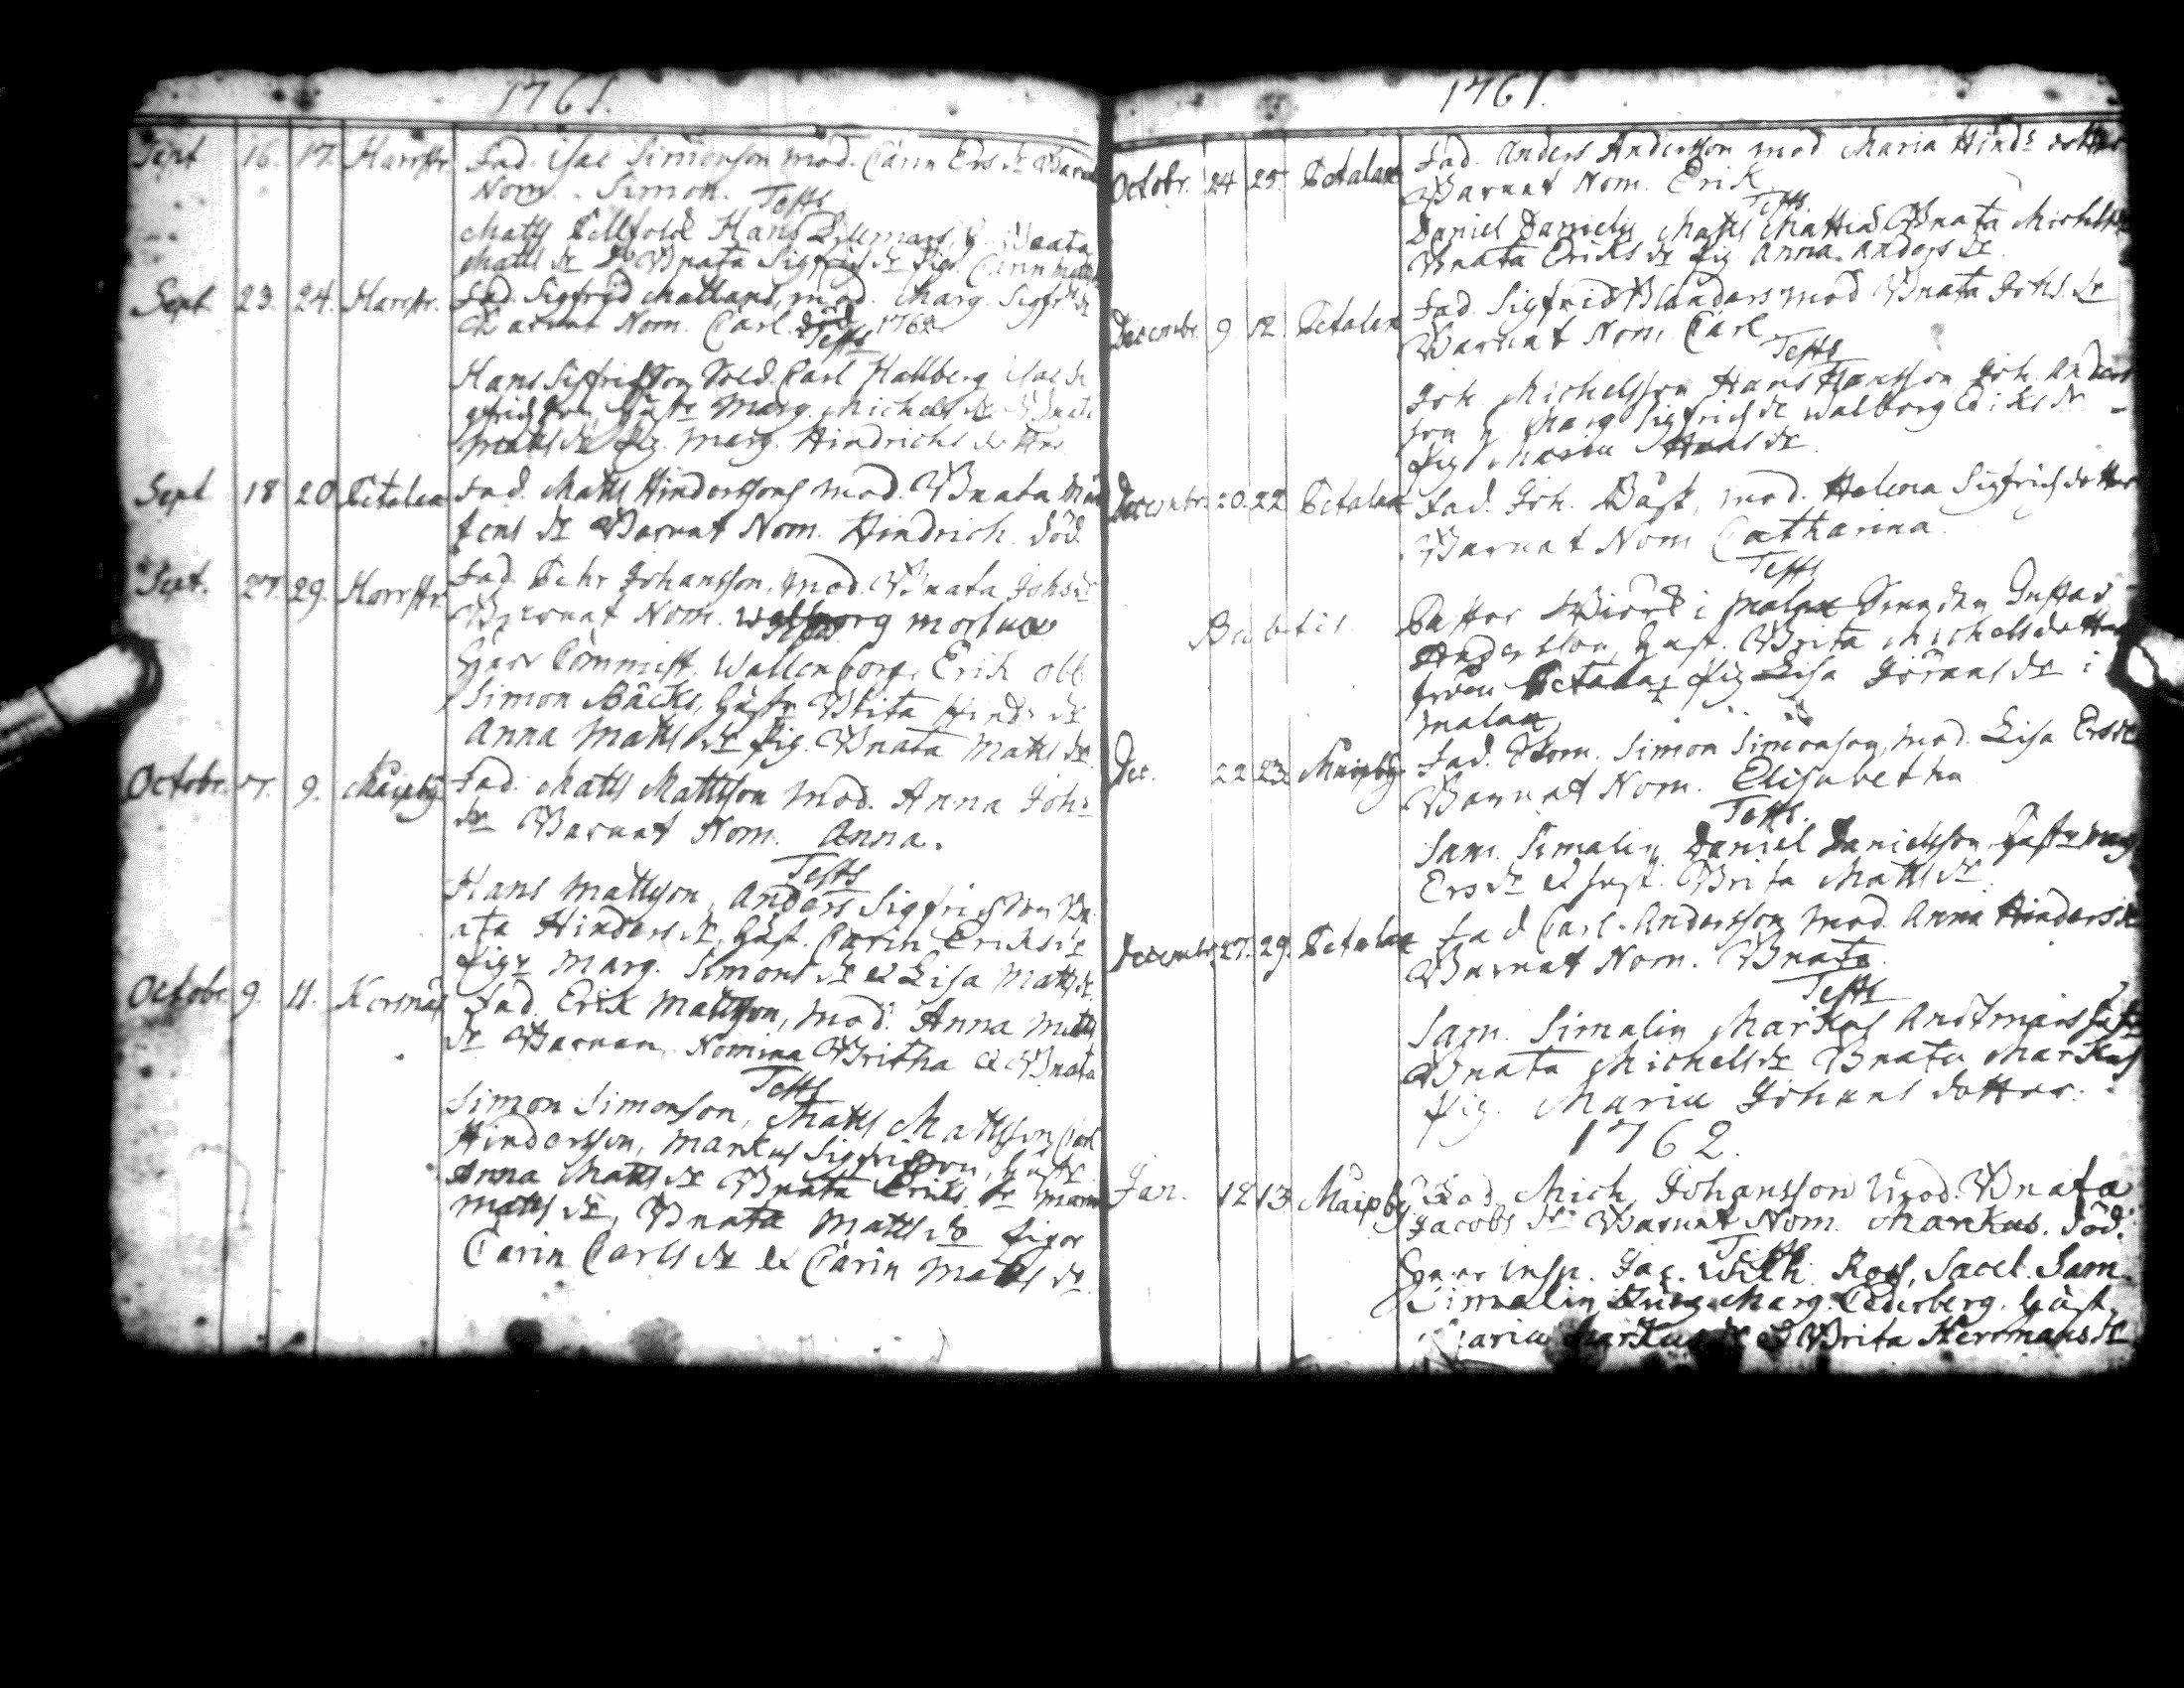 1761.
Sept 16. 17. Harrstr. Fad. Isac Simonson mod. Carin Ers dr Barnet
Nom. Simon.
Testes
Matts Hans
Matts dr Bnata Sigfrids dr Pig. Carin Matts
Sept 23. 24. Harrstr. Fad. Sigfrid Mattsons, mod. Marg. Sigfrds dr
Barnet Nom. Carl. död 1762
Testes
Hans Sigfridsson Sold. Carl Hallberg Isac Si
gfridsson Hustr Marg. Michels dr Bnata
Matts dr Pig. Marg. Hindrichs dotter
Sept 18 20 Petalax Fad. Matts Hinderssons mod. Bnata Mår
tens dr Barnet Nom. Hindrich. död
Sept. 27. 29. Harrstr. Fad. Pehr Johansson, mod. Bnata Johs dr
Barnet Nom. Walborg mortua
Testes
Herr Commiss. Wallenborg, Erik Abb
Simon Bäcks, Hustr Brita Hinds dr
Anna Matts dr Pig. Bnata Matts dr
Octobr. 7. 9. Måipby Fad. Matts Mattsson mod. Anna Johs
dr Barnet Nom. Anna.
Testes
Hans Mattson, Anders Sigfridsson Bn
ata Hinders dr, Hust. Carin Eriks dr
Pigr Marg. Simons dr et Lisa Matts dr
Octobr. 9. 11. Korsnäs Fad. Erik Mattson, mod. Anna Matts
dr Barnen Nomina Britha et Bnata
Testes
Simon Simonson, Matts Mattsson Carl
Hindersson, Markus Sigfridson, Hustr
Anna Matts dr Bnata Eriks dr Maria
Matts dr, Bnata Matts dr Pigor
Carin Carls dr et Carin Matts dr
1761.
Octobr. 24 25 Petalax Fad. Anders Andersson mod. Maria Hinds dotter
Barnet Nom. Erik
Testes
Daniel Daniels, Matts Matts Bnata Michels dr
Bnata Eriks dr Pig Anna Anders dr
Decembr. 9 12. Petalax Fad. Sigfrid Blåndars mod Bnata Johs dr
Barnet Nom. Carl
Testes
Joh. Michelsson Hans Hansson Joh. Anders
son H. Marg. Sigfrids dr Walborg Eriks dr
Pig Maria Hans dr
Decembr. 20. 22. Petalax Fad. Joh. Bäsk, mod. Helena Sigfrids dotter
Barnet Nom Catharina.
Testes
Pastor i Malax Gustav
Andersson, Hust. Brita Michelsdotter
från Petalax Pig Lisa Görans dr i
Malax
Dec. 22 23 Måipby Fad. Simon Simonson, mod. Lisa Ers dr
Barnet Nom. Elisabetha
Testes.
Sam. Simalin Daniel Danielsson, Hustr Marg
Ers dr et Hust. Brita Matts dr
Decembr. 27. 29. Petalax Fad Carl Andersson mod. Anna Hinders dr
Barnet Nom. Bnata.
Testes
Sam. Simalin Markus Andtmans Hustr
Bnata Michels dr Bnata Markus
Pig. Maria Johans dotter.
1762.
Jan. 12 13 Måipby Fad. Mich. Johansson mod. Bnata
Jacobs dr Barnet Nom. Markus. död.
Testes
Herr Insp. Jac. Wilh. Roos, Sacel. Sam.
Simalin, Marg. Cederberg. Hust.
Maria Markus dr et Brita Hermans dr